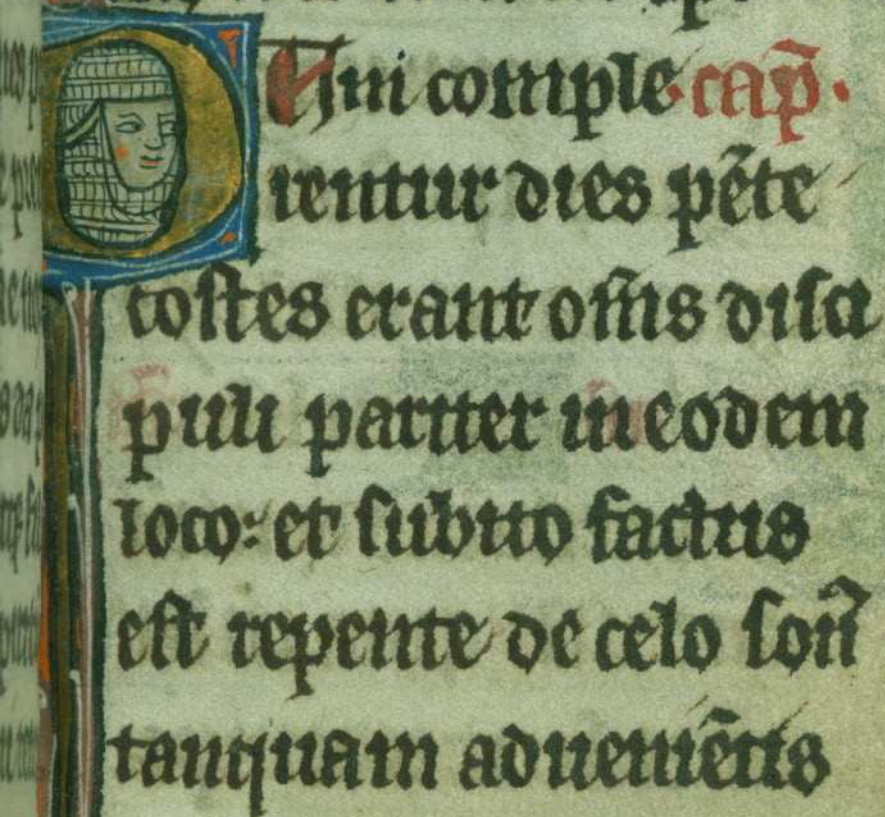 DUm comple·cap̄·
rentur dies pēte
costes erant om̄s disci
puli pariter in eodem
loco: et subito factus
est repente de celo son̄
tanquam adueniētis